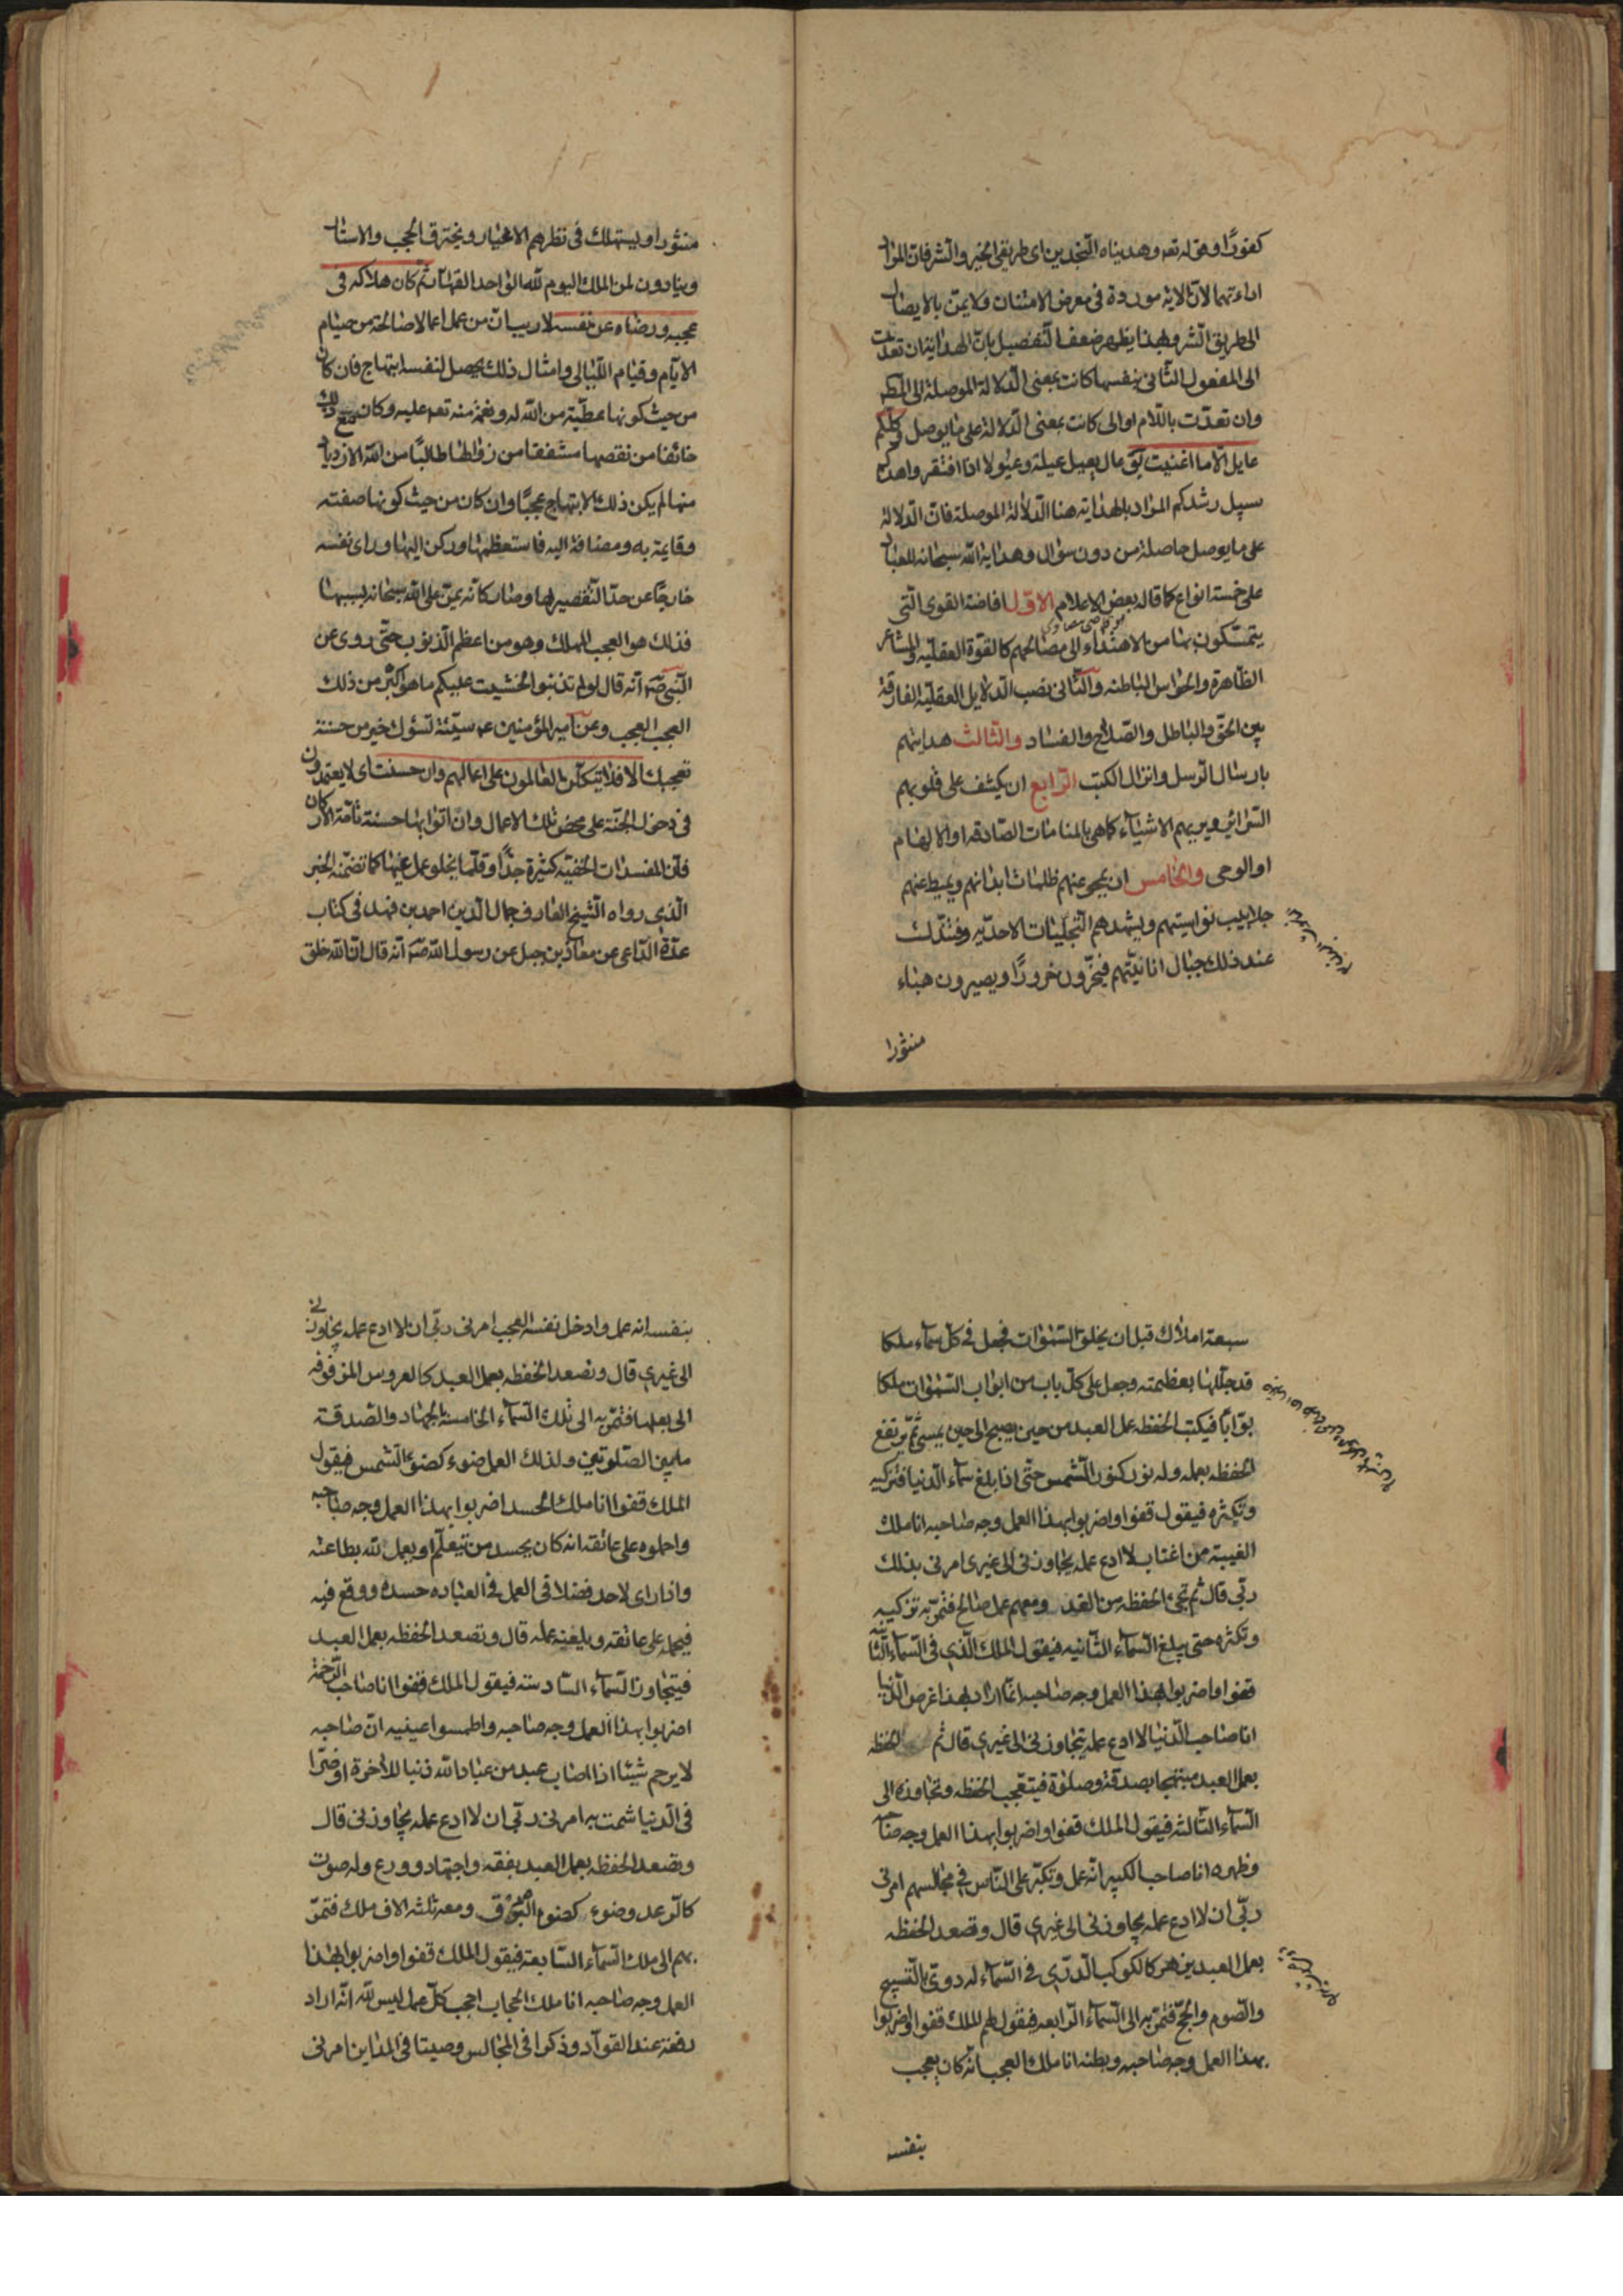 كفورًا وقوله تعه وهديناه النجدين اى طريقى الخير والشر فان المراد
اراءتهما لان الاية موردة فى معرض الامتنان ولا يمنّ بالايصال
الى طريق الشر وبهذا يظهر ضعف التفصيل بان الهداية ان تعدّت
الى المفعول الثانى بنفسها كانت بمعنى الدلالة الموصلة الى المط
وان تعدّت باللام او الى كانت بمعنى الدلالة على ما يوصل وكلكم
عايل الا ما اغنيت يق عال يعيل عيلة وعيولا اذا افتقر واهدنا
سبيل رشدكم المراد بالهداية هنا الدلالة الموصلة فان الدلالة
على ما يوصل حاصلة من دون سؤال وهداية الله سبحانه للعباد
على خمسة انواع كما قاله بعض الاعلام الاوّل افاضة القوى التى
يتمكّنون بها من الاهتداء الى مصالحهم كالقوة العقليّة والمشاعر
الظّاهرة والحواس الباطنه والثّانى نصب الدلايل العقليّة الفارقة
بين الحق والباطل والصّلاح والفساد والثالث هدايتهم
بارسال الرسل وانزال الكتب الرابع ان يكشف على قلوبهم
السّرائر ويريهم الاشياء كما هى بالمنامات الصّادقه او الالهام
او الوحى والخامس ان يمحو عنهم ظلمات ابدانهم ويميط عنهم
جلابيب نواسيتهم ويشهدهم التجلّيات الاحديّه وفتندك
عند ذلك جبال انانيّتهم فيخرّون خرورًا ويصيرون هباء
منثورا
منثورا ويستهلك فى نظرهم الاغيار وتحترق الحجب والاستار
وينادون لمن الملك اليوم لله الواحد القهّار ثم كان هلاكه فى
عجبه ورضاه عن نفسه لا ريب ان من عمل اعمالا صالحة من صيام
الايّام وقيام اللّيالى وامثال ذلك يحصل لنفسه ابتهاج فان كان
من حيث كونها عطيّة من الله له ونعمة منه تعه عليه وكان مع ذلك
خائفا من نقصها مشفقا من زوالها طالبًا من الله الازدياد
منها لم يكن ذلك الابتهاج عجبًا وان كان من حيث كونها صفته
وقايمة به ومضافة اليه فاستعظمها وركن اليها وراى نفسه
خارجًا عن حدّ التقصير بها وصار كانّه يمنّ على الله سبحانه بسببها
فذلك هو العجب المهلك وهو من اعظم الذنوب حتّى روى عن
النّبى صه انّه قال لو لم تذنبوا لخشيت عليكم ما هو اكبر من ذلك
العجب العجب وعن امير المؤمنين عم سيّئة تسؤك خير من حسنة
تعجبك الا فلا يتّكلنّ العاملون على اعمالهم وان حسنت اى لا يعتمدون
فى دخول الجنّة على محض تلك الاعمال وان اتوا بها حسنة تامّة الاركان
فان المفسدات الخفيّة كثيرة جدًّا وقلّما يخلو عمل عنها كما تضمّنه الخبر
الذى رواه الشّيخ العارف جمال الدين احمد بن فهد فى كتاب
عدّة الدّاعى عن معاذ بن جبل عن رسول الله صه انّه قال ان الله خلق
سبعة املاك قبل ان يخلق السّموات فجعل فى كل سماء ملكا
قد جلّلها بعظمته وجعل على كلّ باب من ابواب السّموات ملكا
بوّابًا فيكتب الحفظه عمل العبد من حين يصبح الى حين يمسى ثمّ يرتفع
الحفظه بعمله وله نور كنور الشمس حتّى اذا بلغ سماء الدنيا فتزكيه
وتكثره فيقول قفوا واضربوا بهذا العمل وجه صاحبه انا ملك
الغيبة من اغتاب لا ادع عمله يجاوزنى الى غيرى امرنى بذلك
ربّى قال ثم تجئ الحفظه من الغد ومعهم عمل صالح فتمرّ به تزكيه
وتكثره حتى يبلغ السّماء الثّانيه فيقول الملك الّذى فى السّماء الثّانيه
قفوا واضربوا بهذا العمل وجه صاحبه انّما اراد بهذا عرض الدّنيا
انا صاحب الدّنيا لا ادع عمله يتجاوزنى الى غيرى قال ثم الحفظه
بعمل العبد مبتهجا بصدقة وصلوة فيتعجّب الحفظه وتجاوزه الى
السّماء الثّالثه فيقول الملك قفوا واضربوا بهذا العمل وجه صاحبه
وظهره انا صاحب الكبر انّه عمل وتكبّر على النّاس فى مجالسهم امرنى
ربّى ان لا ادع عمله يجاوزنى الى غيرى قال وتصعد الحفظه
بعمل العبد يزهر كالكوكب الدّرّى فى السّماء له دوىّ بالتّسبيح
والصّوم والحجّ فتمرّ به الى السّماء الرّابعه فيقول لهم الملك قفوا واضربوا
بهذا العمل وجه صاحبه وبطنه انا ملك العجب انّه كان يعجب
بنفسه
بنفسه انه عمل وادخل نفسه العجب امرنى ربّى ان لا ادع عمله يجاوزنى
الى غيرى قال وتصعد الحفظه بعمل العبد كالعروس المزفوفه
الى بعلها فتمرّ به الى ملك السّماء الخامسة بالجهاد والصّدقة
ما بين الصّلوتين ولذلك العمل ضوء كضوء الشّمس فيقول
الملك قفوا انا ملك الحسد اضربوا بهذا العمل وجه صاحبه
واحملوه على عاتقه انه كان يحسد من يتعلّم او يعمل لله بطاعته
واذا راى لاحد فضلا فى العمل فى العباده حسده ووقع فيه
فيحمله على عاتقه ويلعنه عمله قال وتصعد الحفظه بعمل العبد
فيتجاوز السّماء السّادسة فيقول الملك قفوا انا صاحب الرّحمة
اضربوا بهذا العمل وجه صاحبه واطمسوا عينيه انّ صاحبه
لا يرحم شيئا اذا اصاب عبد من عباد الله ذنبا للاخرة او ضرّا
فى الدّنيا شمت به امرنى ربّى ان لا ادع عمله يجاوزنى قال
وتصعد الحفظه بعمل العبد بفقه واجتهاد وورع وله صوت
كالرّعد وضوء كضوء البرق ومعه ثلثه الاف ملك فتمرّ
بهم الى ملك السّماء السّابعة فيقول الملك قفوا واضربوا بهذا
العمل وجه صاحبه انا ملك الحجاب احجب كلّ عمل ليس لله انّه اراد
رفعة عند القوّاد وذكرا فى المجالس وصيتا فى المداين امرنى